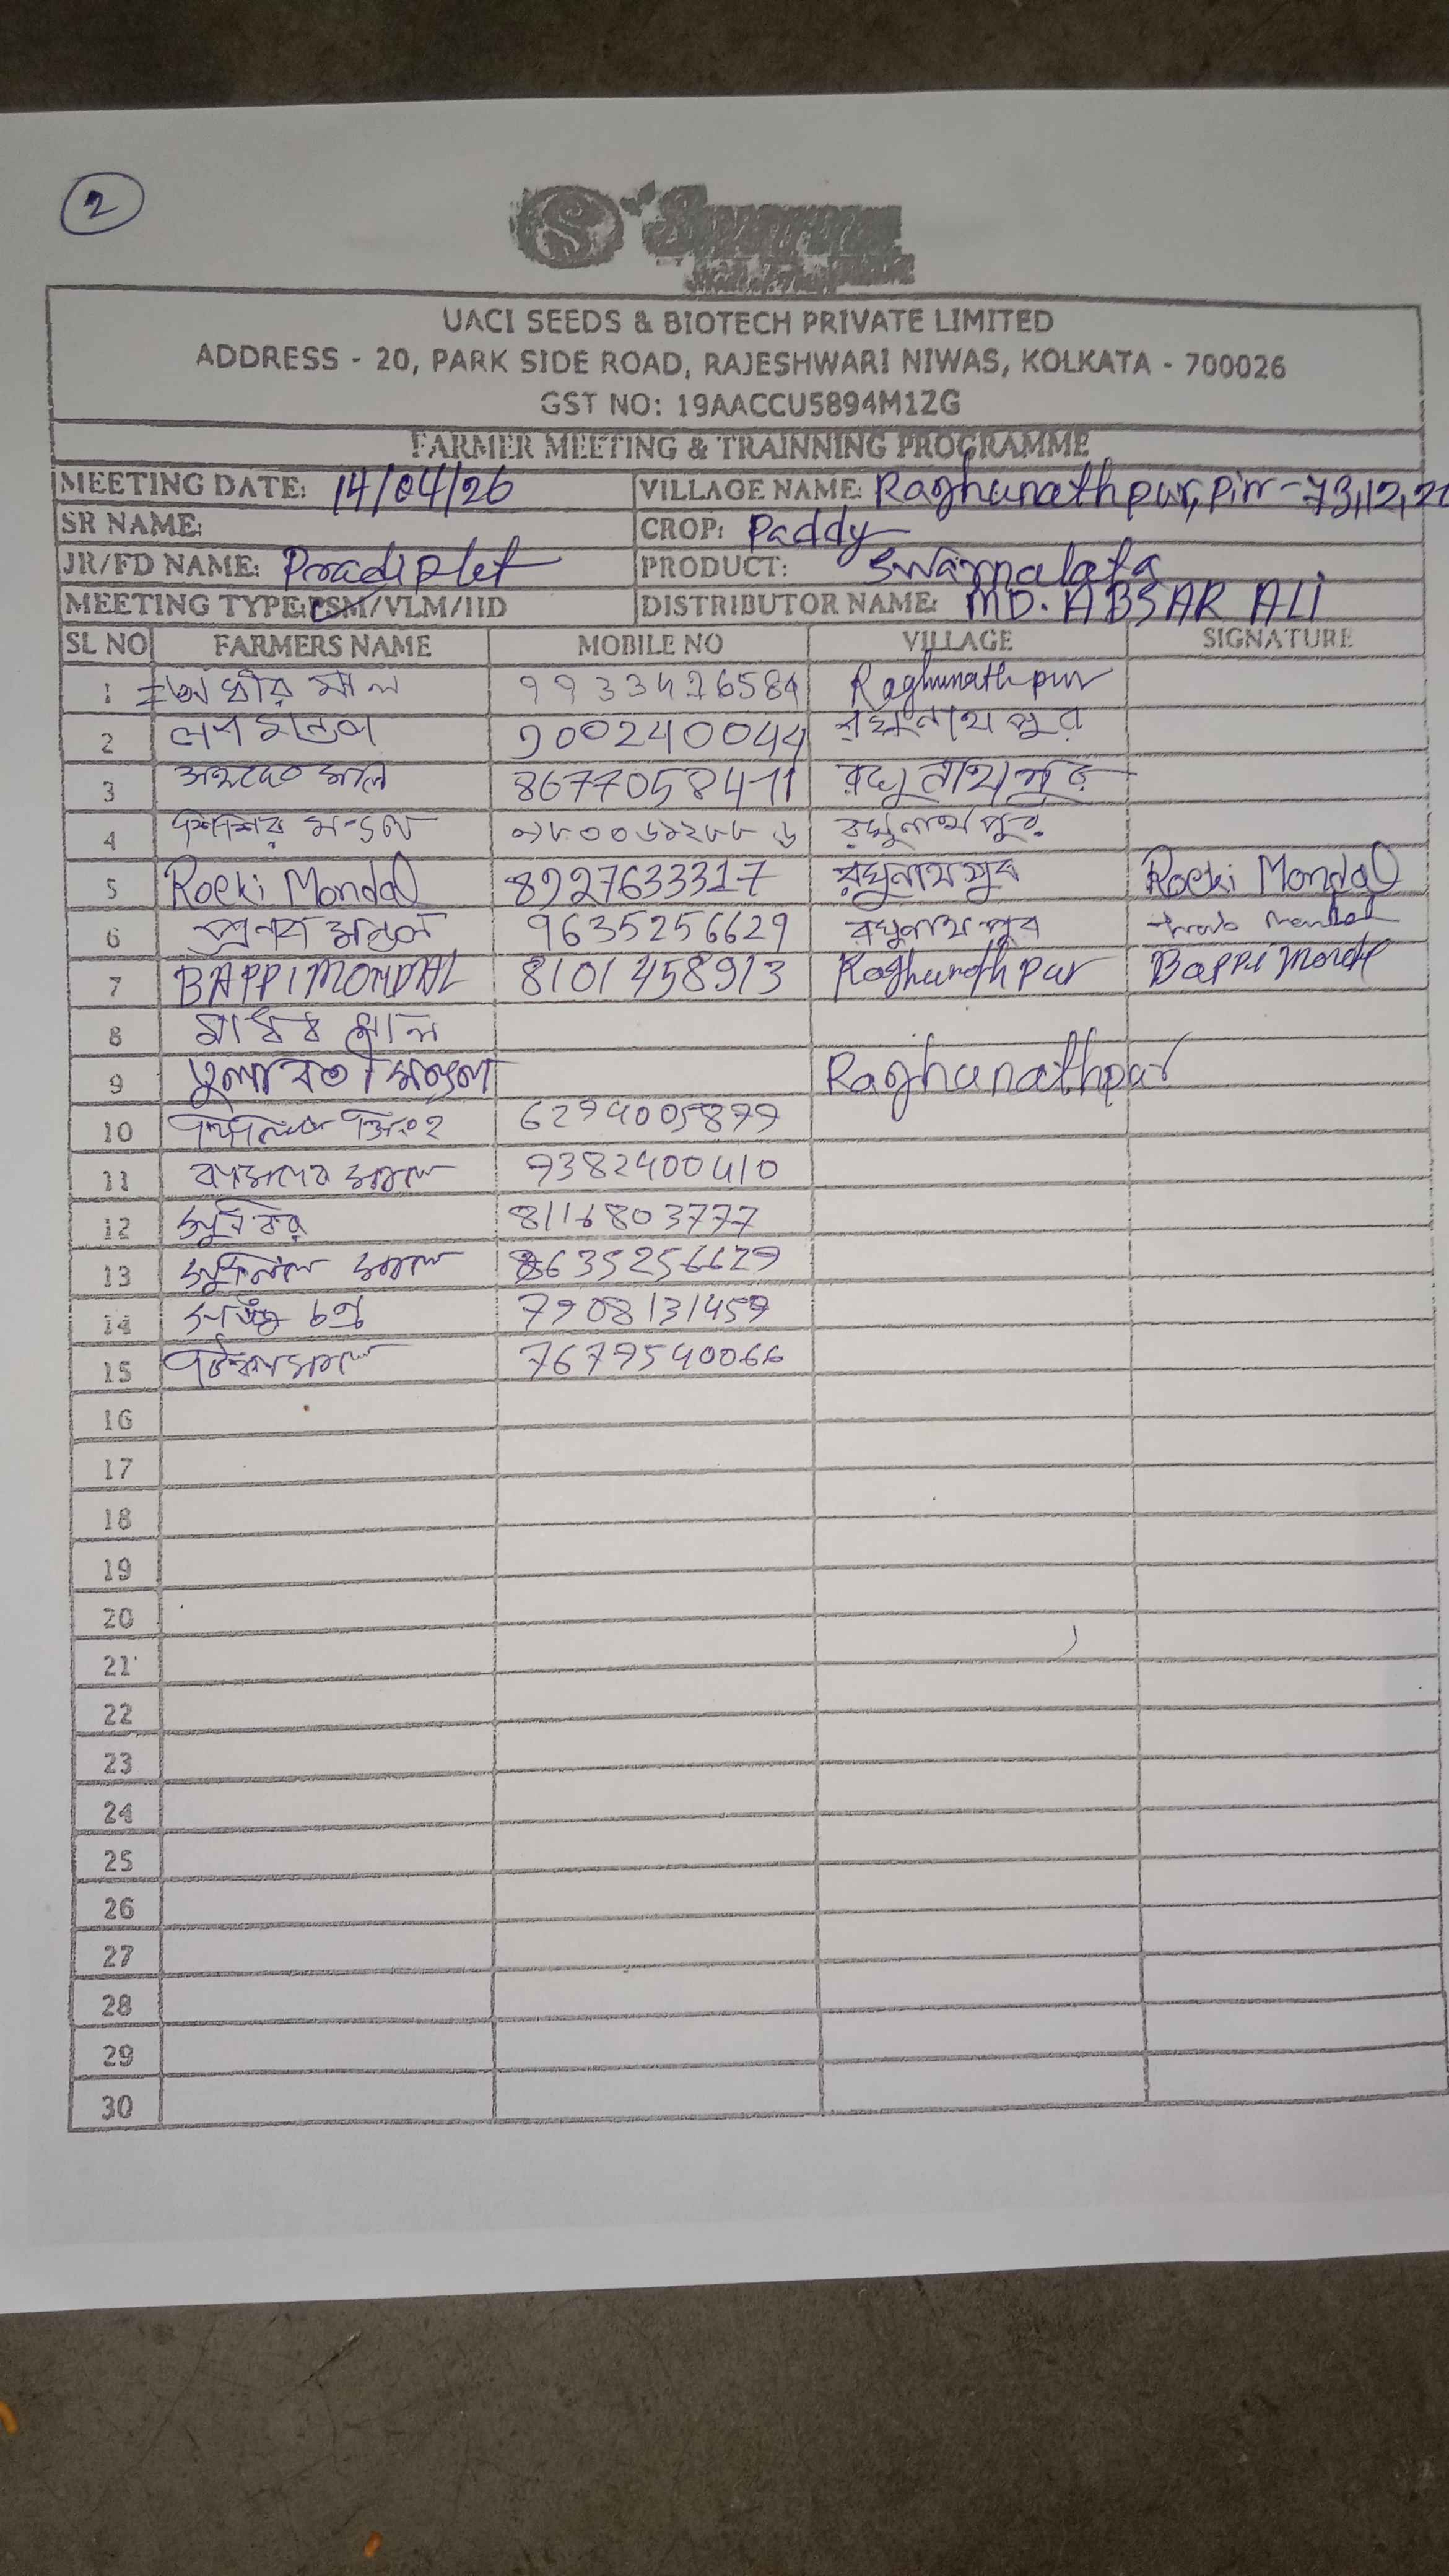 2
UACI SEEDS & BIOTECH PRIVATE LIMITED
ADDRESS - 20, PARK SIDE ROAD, RAJESHWARI NIWAS, KOLKATA - 700026
GST NO: 19AACCU5894M1ZG
FARMER MEETING & TRAINNING PROGRAMME
MEETING DATE: 14/04/26 VILLAGE NAME: Raghunathpur, pin-73,12,
SR NAME: CROP: Paddy
JR/FD NAME: Pradip let PRODUCT: Swarnalata
MEETING TYPE: PSM/VLM/IID DISTRIBUTOR NAME: MD. ABSAR ALI
SL NO FARMERS NAME MOBILE NO VILLAGE SIGNATURE
1 অধীর মাল Raghunathpur
2 মন্ডল 9002240044 রঘুনাথপুর
3 মাল রঘুনাথপুর
4 শিশির মণ্ডল রঘুনাথপুর
5 Rocki Mondal 8927633317 রঘুনাথপুর Rocki Mondal
6 প্রনব মন্ডল 9635256629 রঘুনাথপুর Mondal
7 BAPPI MONDAL 8101458913 Raghunathpur Bappi Mondal
8 মাধব মাল
9 মন্ডল Raghunathpur
10 6294005899
11 9382400410
12 8116803777
13 8635256629
14 7908131459
15 7679540066
16
17
18
19
20
21
22
23
24
25
26
27
28
29
30